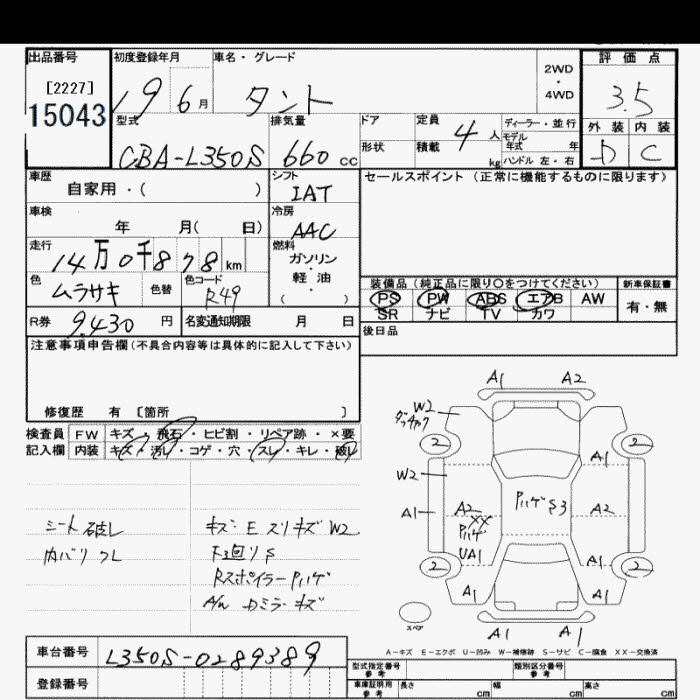 出品番号 初度登録年月 車名・グレード 2WD・4WD 評価点
[2227]
15043 19 6月 タント 3.5
型式 排気量 ドア 定員 ディーラー・並行 外装 内装
CBA-L350S 660cc 形状 積載 4人 kg モデル年式 年 ハンドル 左・右 D C
車歴 シフト セールスポイント (正常に機能するものに限ります)
自家用・( ) IAT
車検 冷房
年 月( 日) AAC
走行 燃料
14万0千878km ガソリン・軽油( )
色 色替 色コード 装備品(純正品に限り○をつけてください) 新車保証書
ムラサキ R49 PS PW ABS エアB AW 有・無
SR ナビ TV カワ
R券 9,430円 名変通知期限 月 日 後日品
注意事項申告欄(不具合内容等は具体的に記入して下さい)
修復歴 有 [箇所 ]
検査員 FW キズ・飛石・ヒビ割・リペア跡・×要
記入欄 内装 キズ・汚レ・コゲ・穴・スレ・キレ・破レ
シート破レ
内バリスレ
キズ・Eスリキズ W2
下廻りS
RスポイラーPハゲ
A/W Dミラーキズ
A1 A2
W2
2 2
A1
W2
A1 A2 XX Pハゲ Pハゲ S3 A2
UA1 A1
2 2
A1 A1
A1 A1
スペア
A-キズ E-エクボ U-凹み W-補修跡 S-サビ C-腐食 XX-交換済
車台番号 L350S-0289389
登録番号
型式指定番号 参考 類別区分番号 参考
車庫証明用 参考 長さ cm 幅 cm 高さ cm